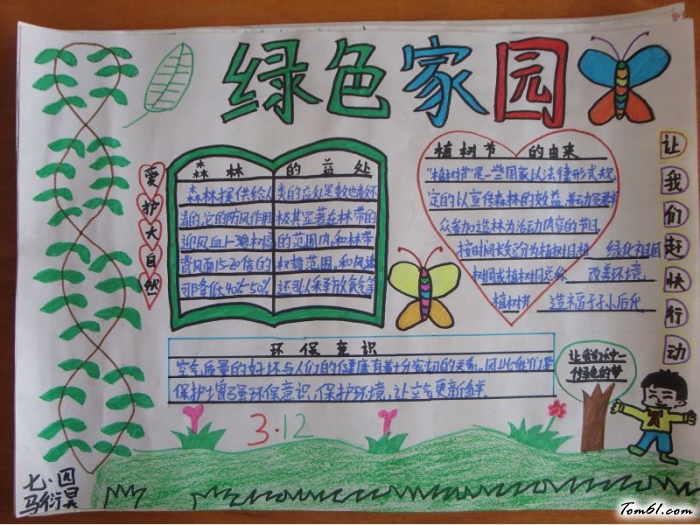 绿色家园
爱护大自然
森林的益处
森林提供给人类的益处是数也数不
清的,它的防风作用极其显著在林带的
迎风面上
的范围内,和林带
背风面15-20倍的树高范围,和风速
可降低40%-50%
植树节的由来
"植树节"是一些国家以法律形式规
定的以宣传森林的效益,并动员群
众参加造林为活动内容的节日
按时间长短分为植树日植
绿化祖国
树周或植树月总称
改善环境,
植树节
造福子孙后代
让我们赶快行动
环保意识
空气质量的好坏与人们的健康有着十分密切的关系。因此我们要
保护增强环保意识,保护环境,让立会更新鲜
3.12
七·四
马衍昊
Tom61.com